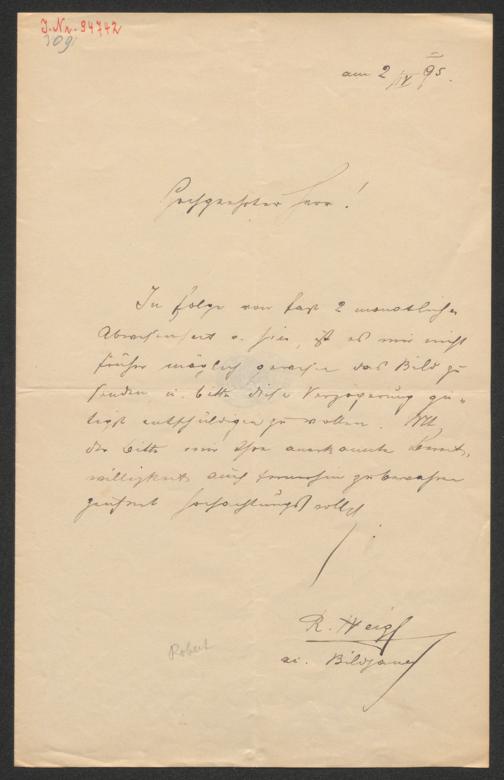 J. Nr. 94742
309
am 2/IX 95.
Hochgeehrter Herr!
In folge von fast 2 monatlicher
Abwesenheit v. hier, ist es mir nicht
früher möglich gewesen das Bild zu
senden, u. bitte diese Verzögerung gü-
tigst entschuldigen zu wollen. Mit
der bitte mir Ihre anerkannte Bereit-
willigkeit auch fernerhin zu bewahren
zeichnet hochachtungsvollst
R. Weigl
Bildhauer
Robert